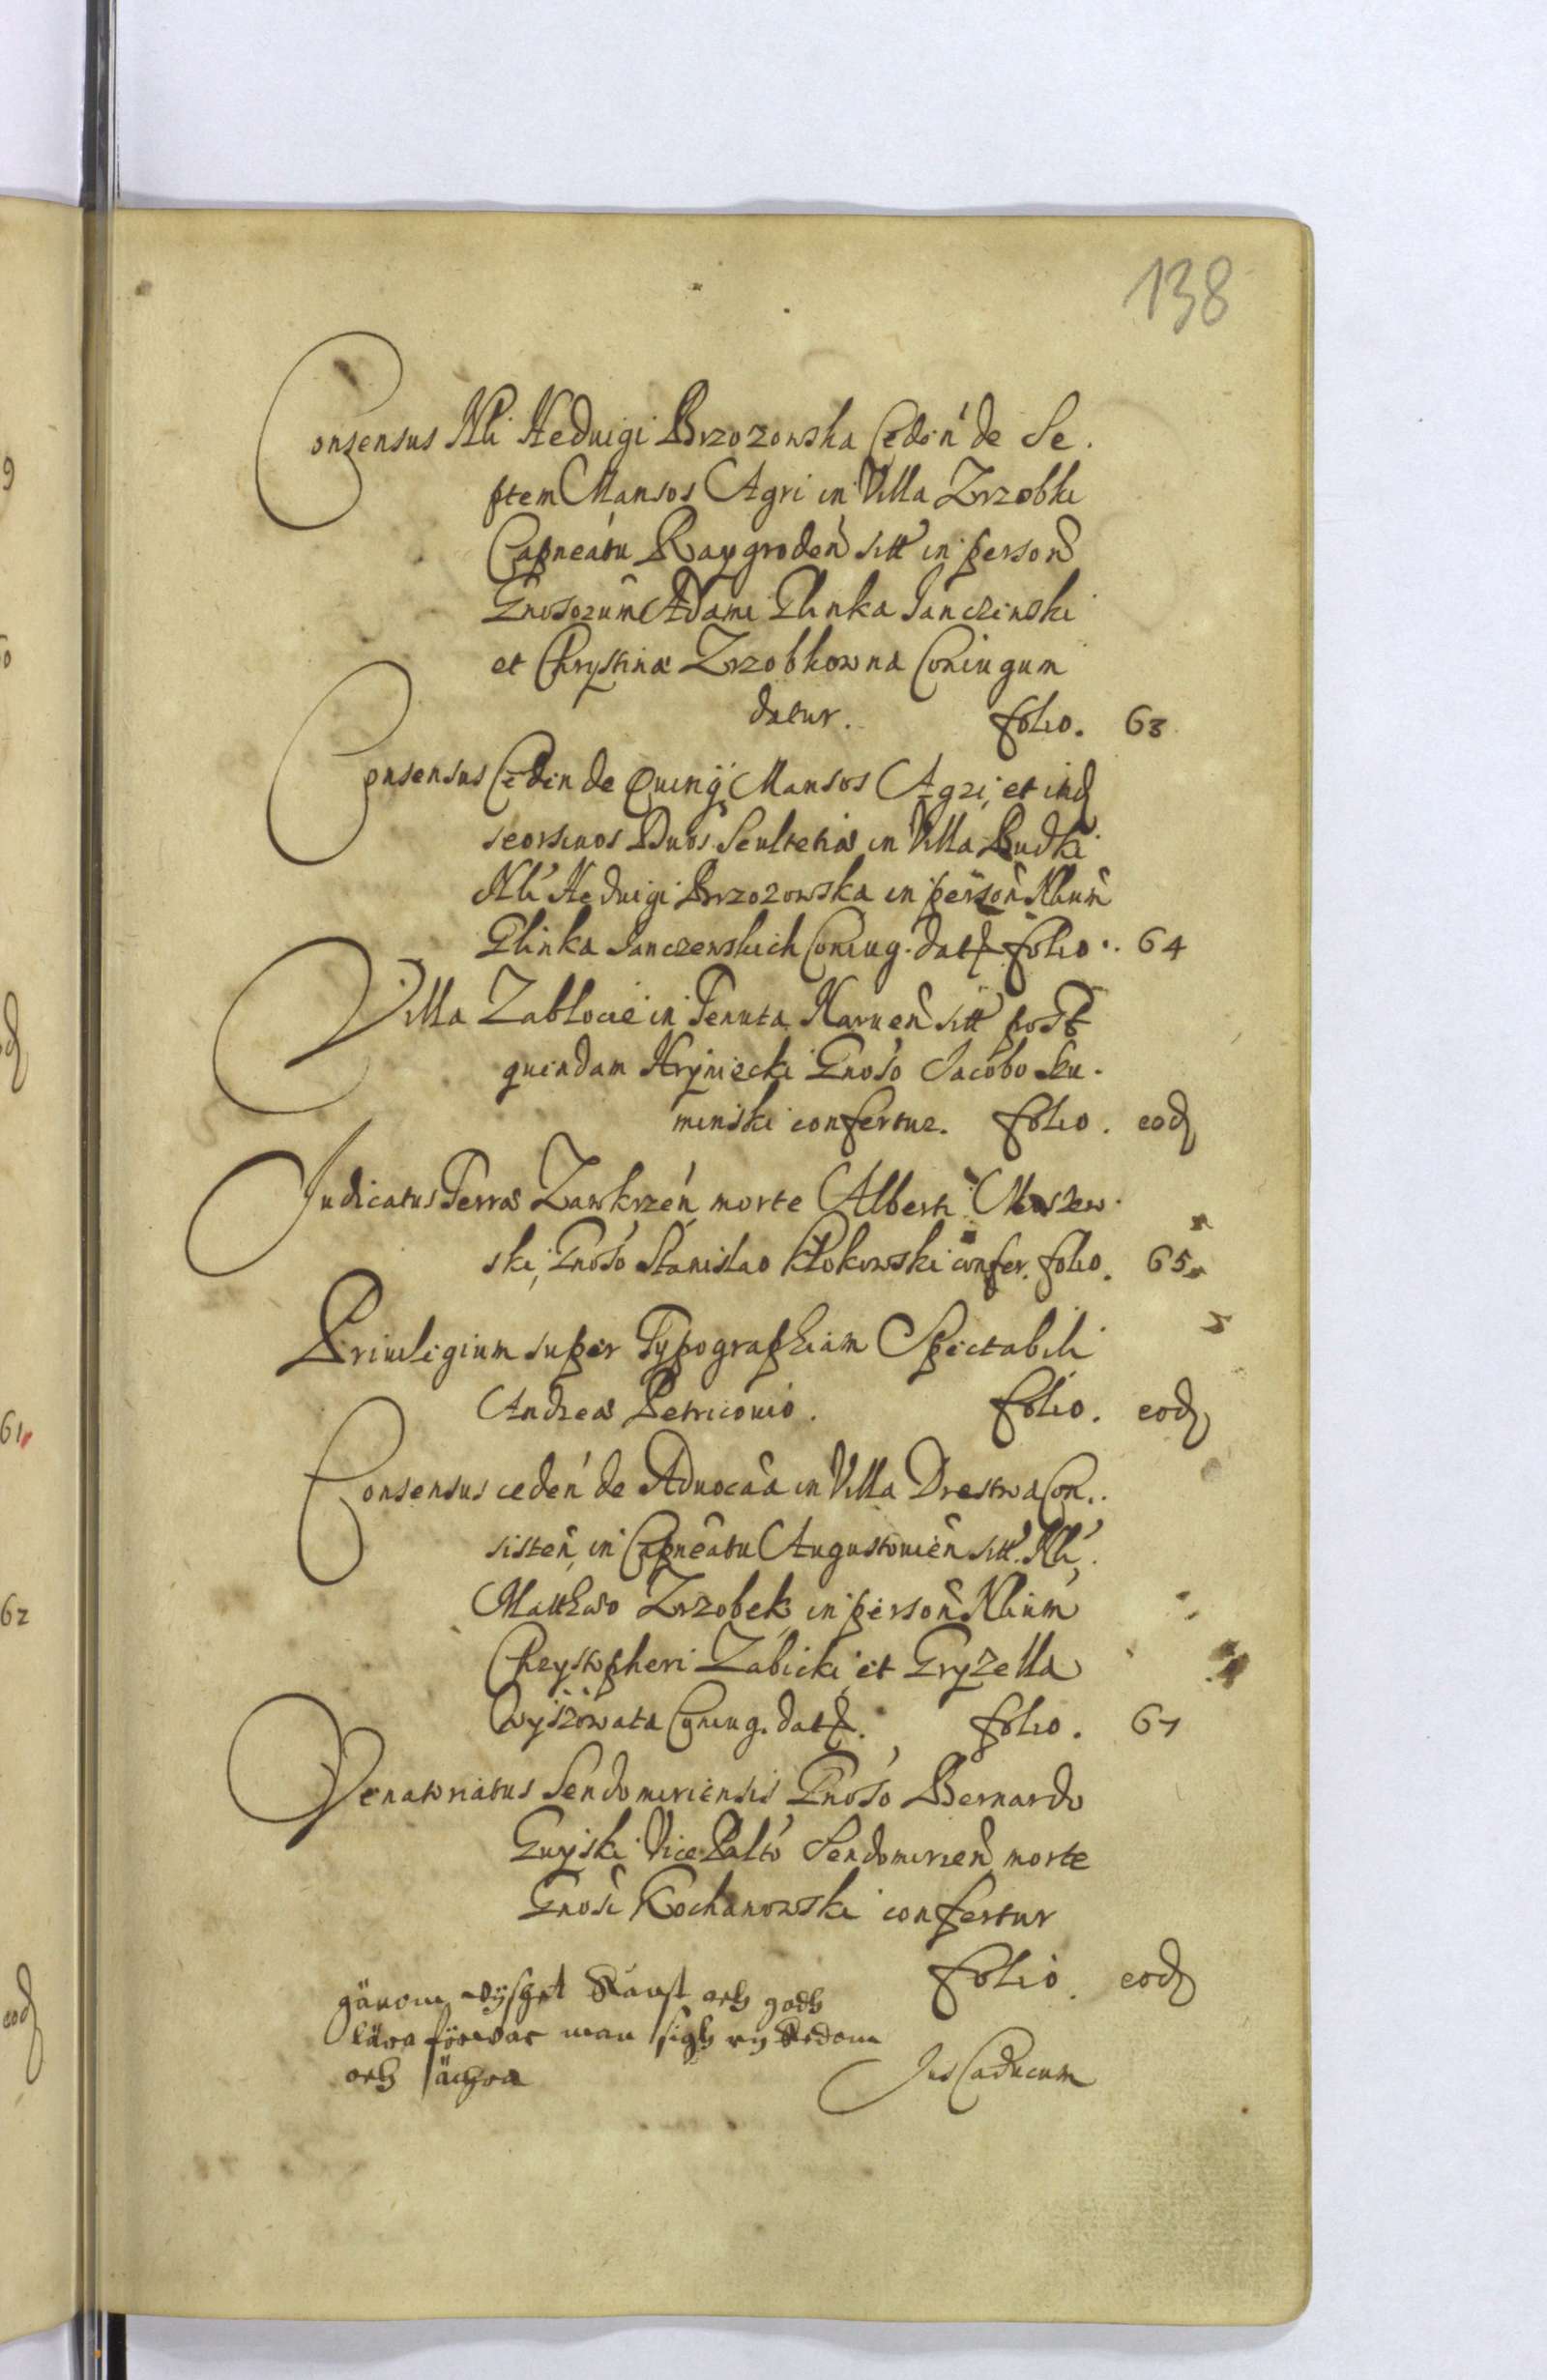 138
Consensus Nli Heduigi Brzozowska Cedeń de Se.
ptem Mansos Agri in Villa Zrzobki
Capneatu Raygrodeń sitt in person
Gnosorum Adami Glinka Janczewski
et Chrystinæ Zrzobkowna Coniugum
datur. folio. 63
Consensus Cedeń de Quinq Mansos Agri, et ind
seorsiuos Duos Scultetiæ in Villa Budki
Nli Heduigi Brzozowska in person Nlium
Glinka Janczewskich Coniug. datr folio. 64
Villa Zablocie in Tenuta Narueń sitt post
quendam Hryniecki Gnoso Jacobo Ku.
minski confertur. folio. eod
Judicatus Terræ Zawkrzeń morte Alberti Moszew
ski, Gnoso Stanislao Klokowski confer. folio. 65
Priuilegium super Typographiam Spectabili
Andreæ Petricouio. folio. eod
Consensus cedeń de Aduocaa in Villa Drestwa Con.
sisteń in Capneatu Augustouień sitt. Nli
Matthæo Zrzobek in person Nlium
Chrystopheri Zabicki et Gryzella
Wyszowata Coniug. datr. folio. 67
Venatoriatus Sendomiriensis Gnoso Bernardo
Guyski Vice Palto Sendomirień morte
Gnosi Kochanowski confertur
folio. eod
gänom wijshet Kånst och godh
lära förwar man sigh
och
Jus Caducum